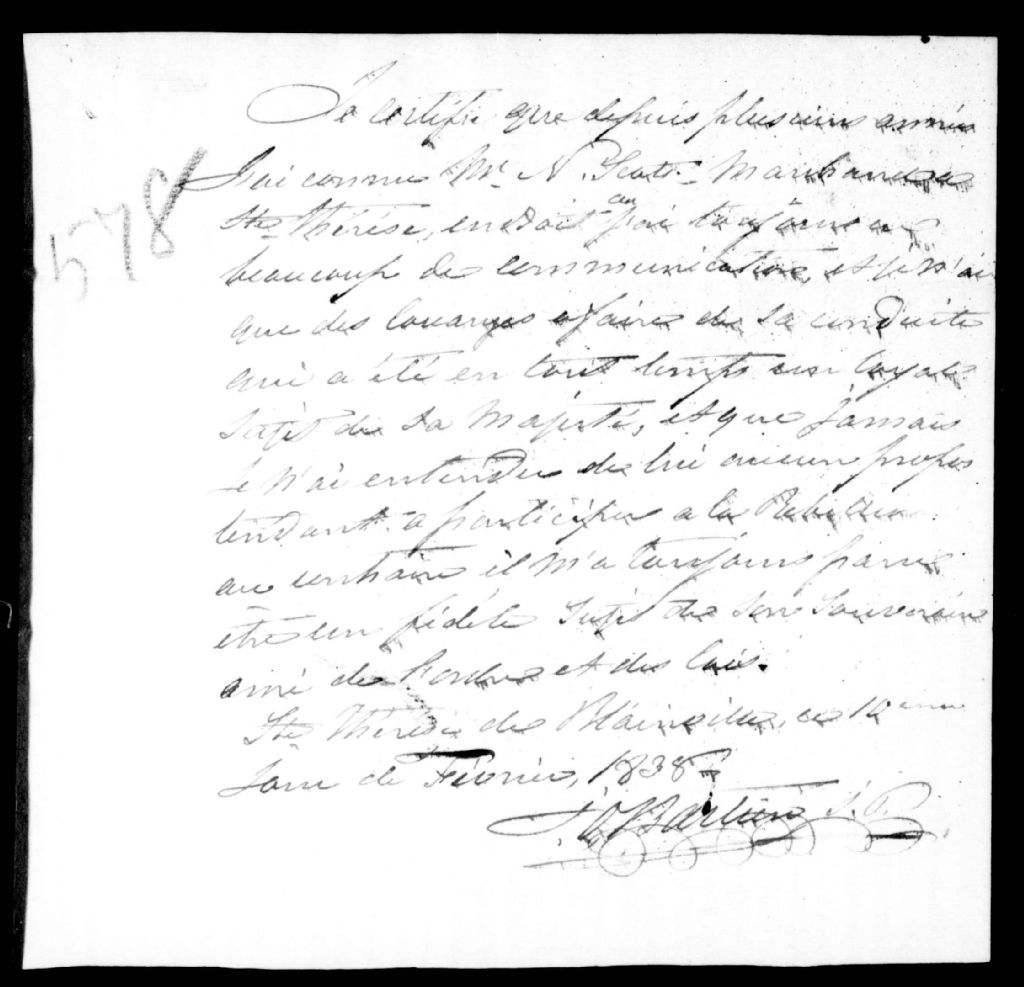 Je certifie que depuis plusieurs années
J'ai connu Mr. N. Scott Marchand à
Ste Thérèse, endroit où j'ai toujours eu
beaucoup de communication, et je n'ai
que des louanges a faire de sa conduite
qui a été en tout temps un loyal
Sujet de Sa Majesté, et que jamais
Je n'ai entendu de lui aucun propos
tendant a participer a la Rebellion
au contraire il m'a toujours paru
être un fidèle Sujet de Son Souverain
ami de l'ordre et des lois.
Ste Thérèse de Blainville, ce 10 eme
Jour de Février, 1838
J. P.
578